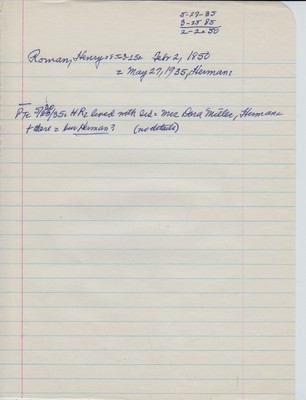 5-27-35
3-25 85
2-2-50
Roman, Henry Feb 2, 1850
= May 27, 1935, Herman:
HR: lived with Sis: Mrs Dora Miller, Herman
+ there = bur Herman? (no details)